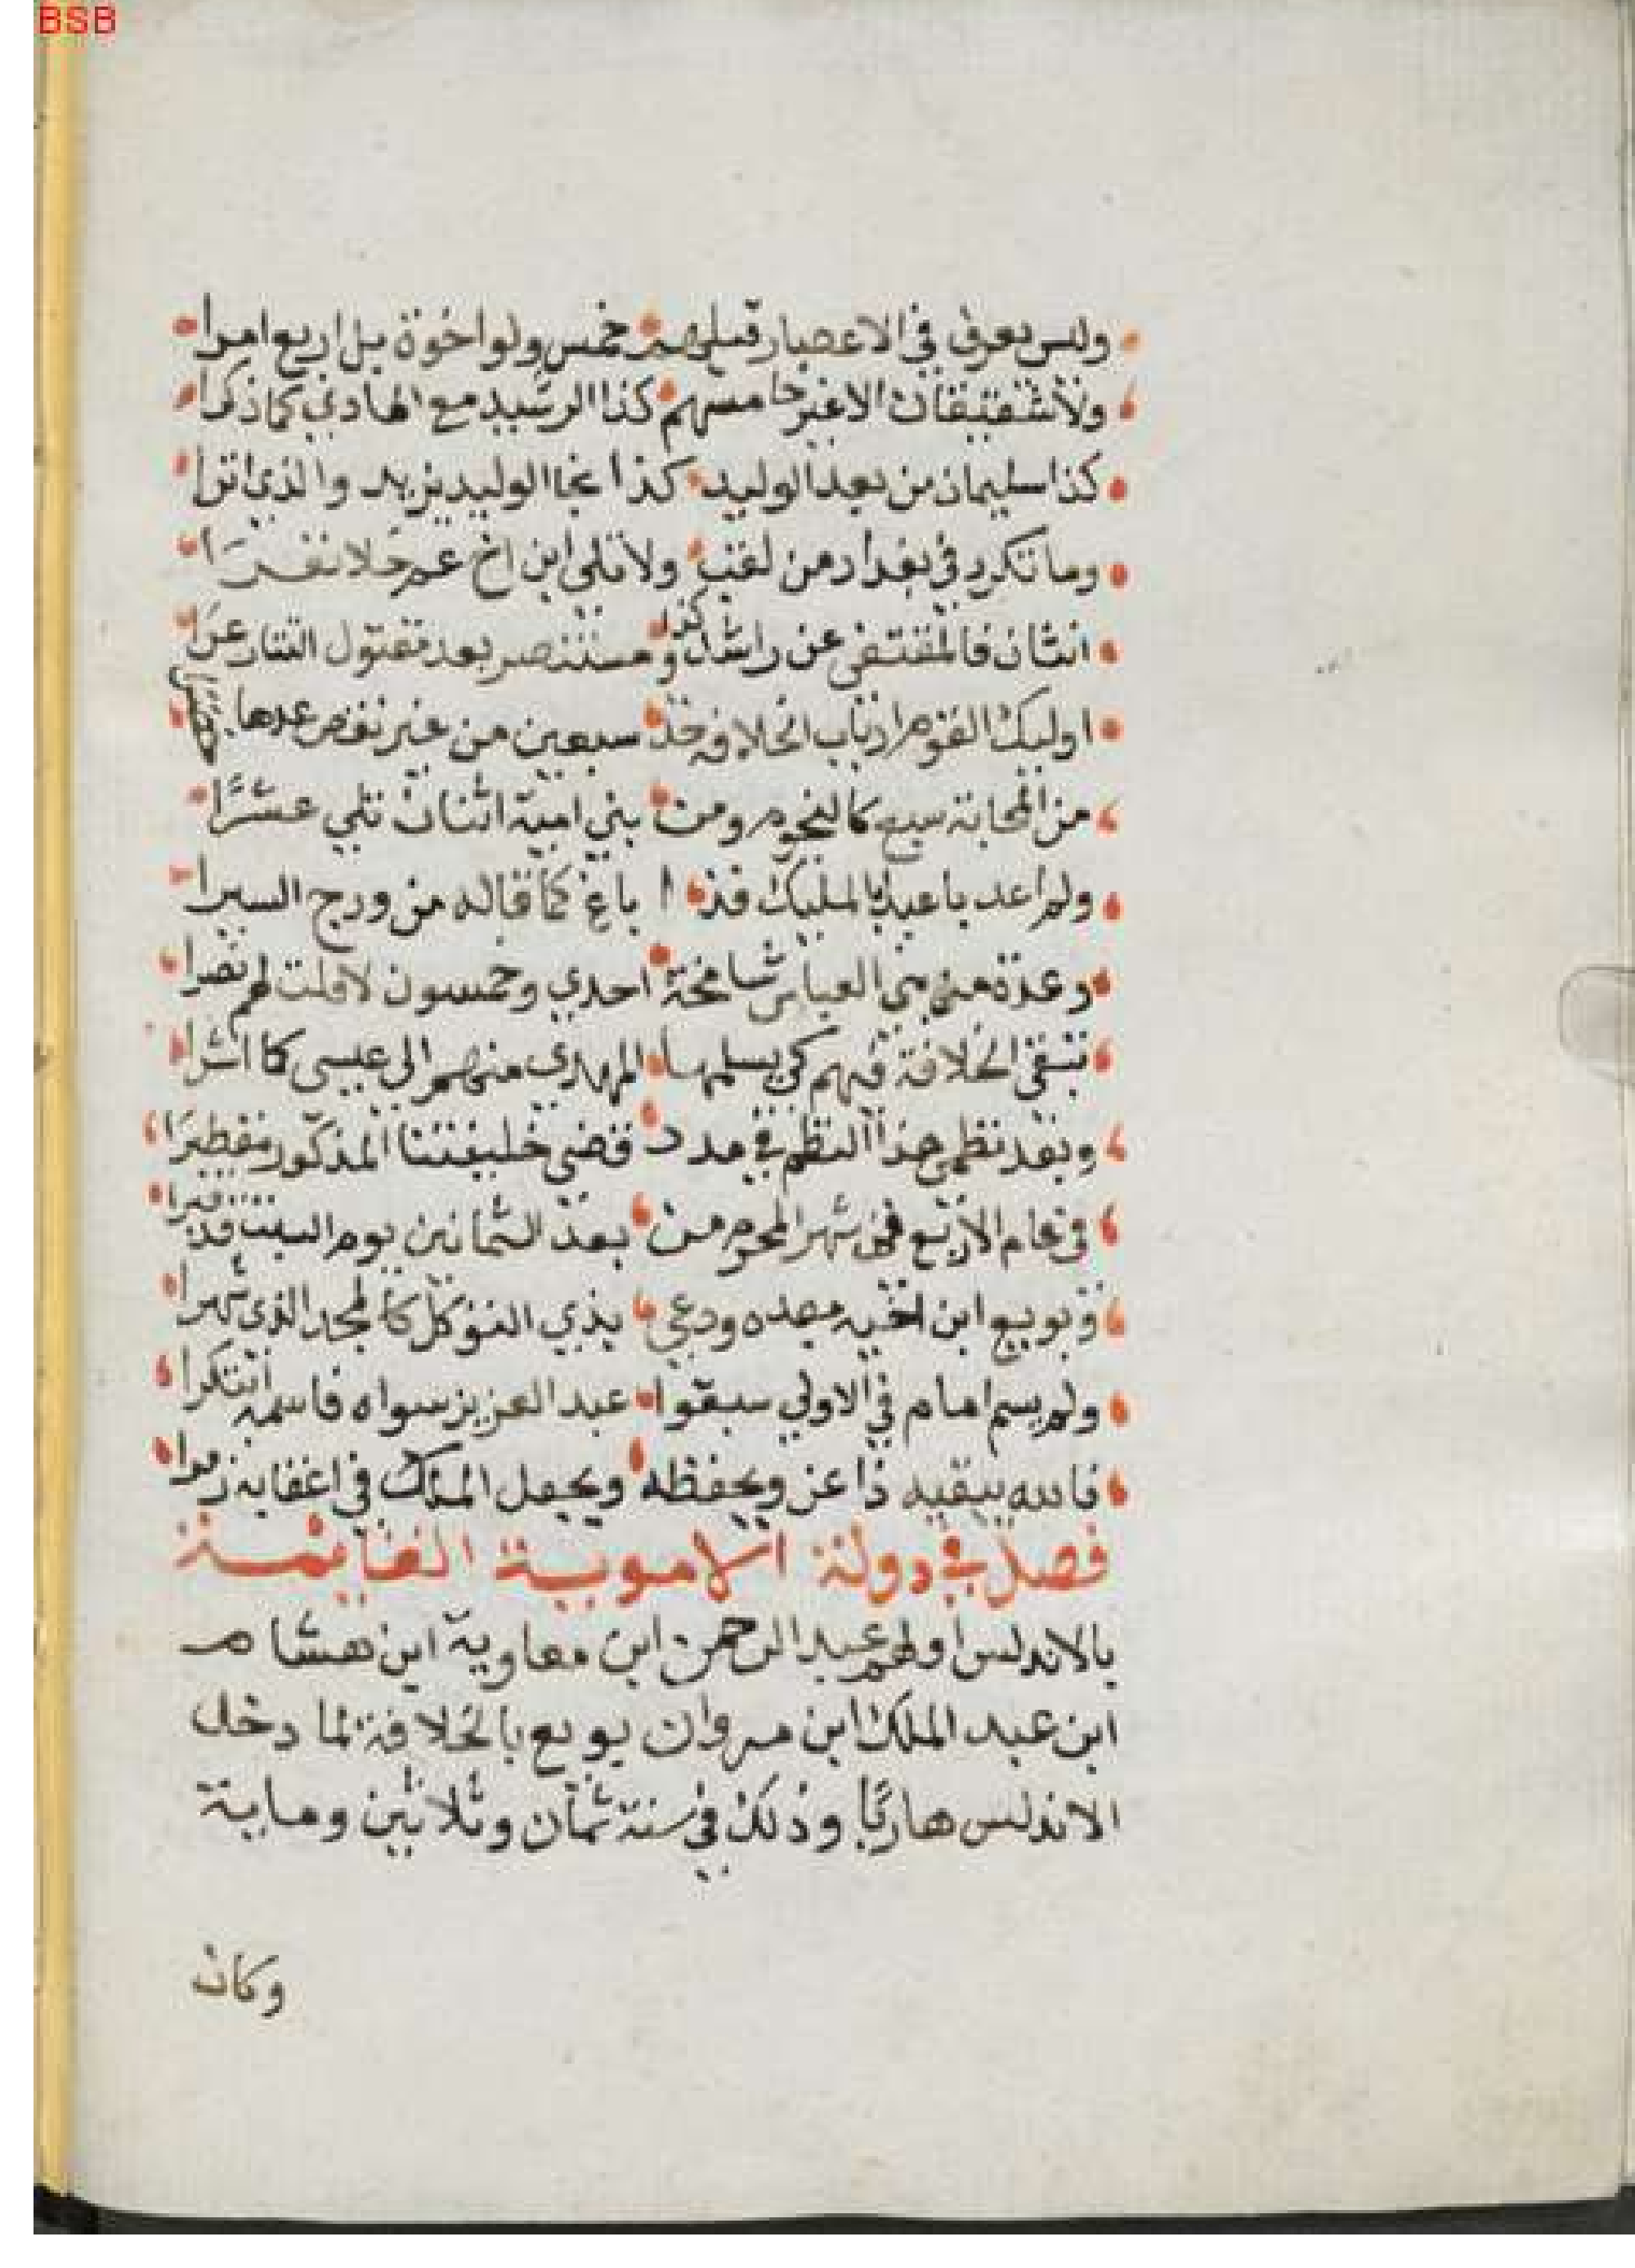 BSB
وليس يعرف في الاعصار قبلهم خمس ولوا اخوة بل اربع امرا
ولا شقيقان الا غير خامسهم كذا الرشيد مع الهادي كما ذكرا
كذا سليمان من بعد الوليد كذا نجا الوليد يزيد والذي اثرا
وما تكرر في بغداد من لقب ولا تلى ابن اخ عم خلا نفرا
اثنان فالمقتفي عن راشد وكذا مستنصر بعد مقتول التتار عرا
اوليك القوم ارباب الخلافة خذ سبعين من غير نقص عدها
من الصحابة سبع كالنجوم ومن بني امية اثنان تلي عشرا
ولم اعد با عبد المليك فذا باغ كما قاله من ورج السيرا
وعدة من بني العباس شامخة احدي وخمسون لا قلت لهم نصرا
تبقى الخلافة فيهم كي يسلمها المهدي منهم الي عيسى كما اثرا
وبعد نظمي هذا النظم في مدد قضي خليفتنا المذكور مفطيرا
في عام الاربع في شهر المحرم من بعد الثمانين يوم السبت قد قبرا
وبويع ابن اخيه بعده ودعي بذي التوكل كالمجد الذي شهرا
ولم يسم امام في الاولي سبقوا عبد العزيز سواه فاسمه ابتكرا
فالله يبقيه ذا عز ويحفظه ويجعل الملك في اعقابه زمرا
فصل في دولة الاموية القايمة
بالاندلس اولهم عبد الرحمن ابن معاوية ابن هشام
ابن عبد الملك ابن مروان بويع بالخلافة لما دخل
الاندلس هاربا وذلك في سنة ثمان وثلاثين وماية
وكان